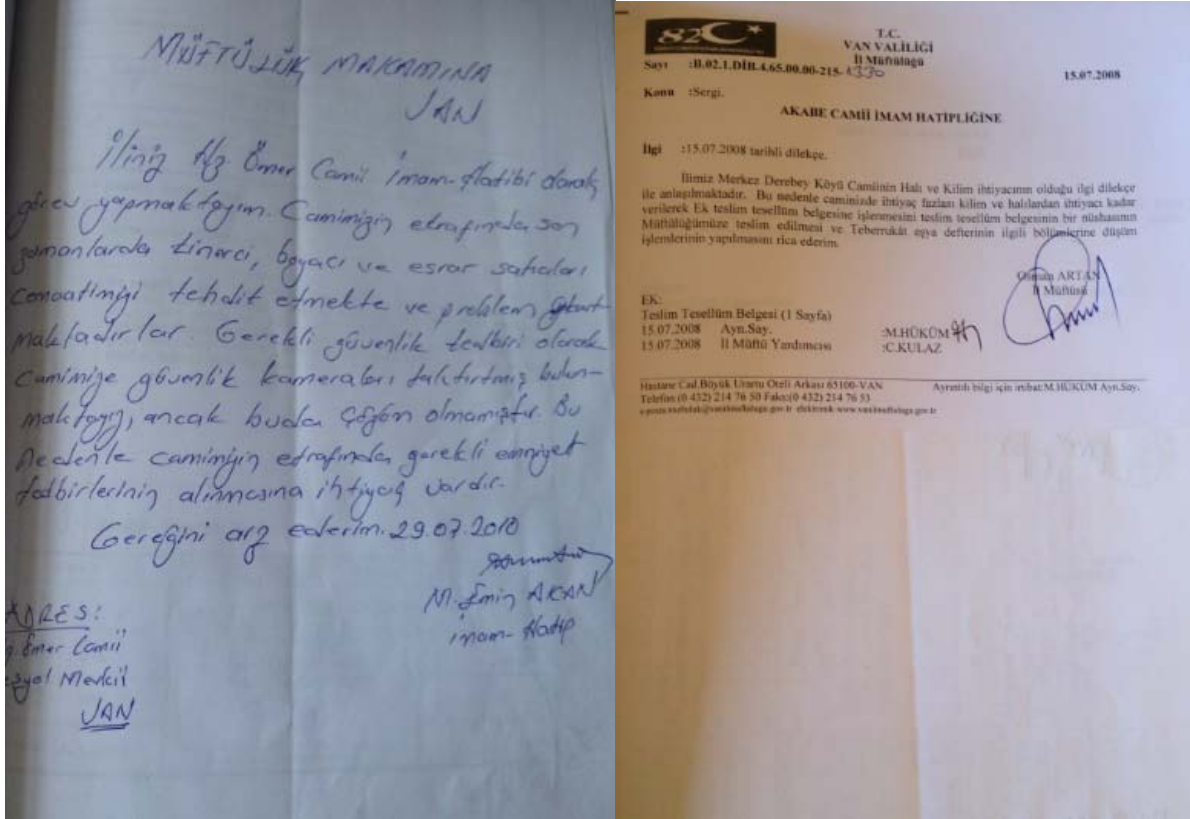 MÜFTÜLÜK MAKAMINA
VAN
İliniz Hz. Ömer Camii İmam-Hatibi olarak
görev yapmaktayım. Camimizin etrafında son
zamanlarda tinerci, boyacı ve esrar
Cemaatimizi tehdit etmekte ve problem
maktadırlar. Gerekli güvenlik tedbiri olarak
Camimize güvenlik kameraları taktırtmış bulun-
maktayız, ancak buda çözüm olmamıştır. Bu
Nedenle camimizin etrafında gerekli emniyet
tedbirlerinin alınmasına ihtiyaç vardır.
Gereğini arz ederim. 29.07.2010
M. Emin AKAN
İmam-Hatip
ADRES:
Ömer Camii
VAN
82
T.C.
VAN VALİLİĞİ
İl Müftülüğü
Sayı :B.02.1.DİB.4.65.00.00-215-1330
15.07.2008
Konu :Sergi.
AKABE CAMİİ İMAM HATİPLİĞİNE
İlgi :15.07.2008 tarihli dilekçe.
İlimiz Merkez Derebey Köyü Camiinin Halı ve Kilim ihtiyacının olduğu ilgi dilekçe
ile anlaşılmaktadır. Bu nedenle caminizde ihtiyaç fazlası kilim ve halılardan ihtiyacı kadar
verilerek Ek teslim tesellüm belgesine işlenmesini teslim tesellüm belgesinin bir nüshasının
Müftülüğümüze teslim edilmesi ve Teberrukât eşya defterinin ilgili bölümlerine düşüm
işlemlerinin yapılmasını rica ederim.
Osman ARTAN
İl Müftüsü
EK:
Teslim Tesellüm Belgesi (1 Sayfa)
15.07.2008 Ayn.Say. :M.HÜKÜM
15.07.2008 İl Müftü Yardımcısı :C.KULAZ
Hastane Cad.Büyük Urartu Oteli Arkası 65100-VAN Ayrıntılı bilgi için irtibat:M.HÜKÜM Ayn.Say.
Telefon (0 432) 214 76 50 Faks:(0 432) 214 76 53